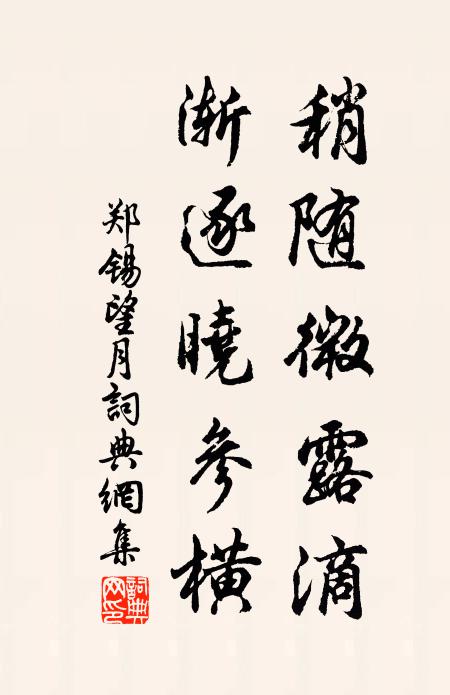 稍随微露滴
渐逐曉参横
郑锡望月詞典網集
詞典網印